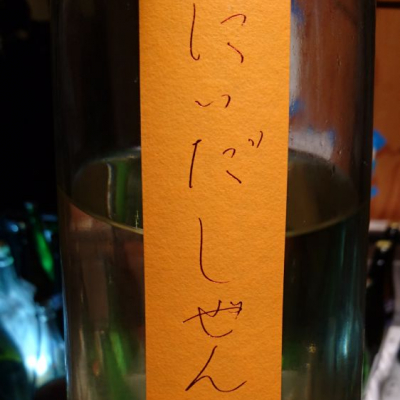 にいだしぜん